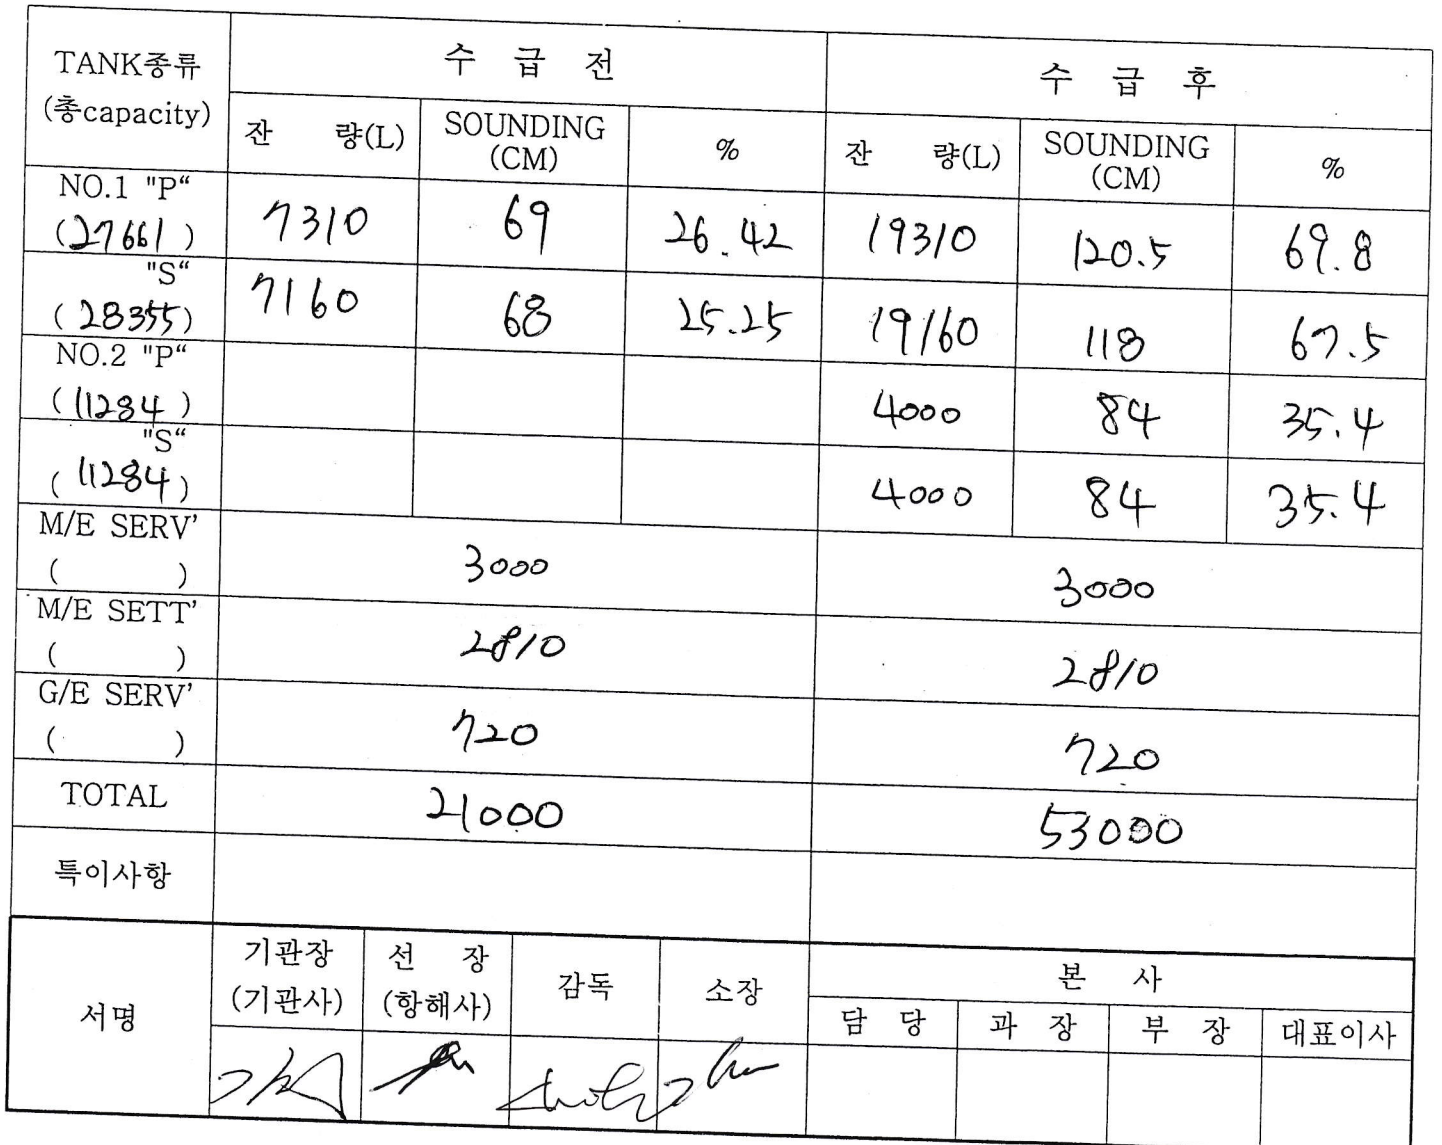 TANK종류
(총capacity)
수 급 전
수 급 후
잔 량(L)
SOUNDING
(CM)
%
잔 량(L)
SOUNDING
(CM)
%
NO.1 "P“
(27661)
7310
69
26.42
19310
120.5
69.8
"S“
(28355)
7160
68
25.25
19160
118
67.5
NO.2 "P“
(11284)
4000
84
35.4
"S“
(11284)
4000
84
35.4
M/E SERV'
( )
3000
3000
M/E SETT'
( )
2810
2810
G/E SERV'
( )
720
720
TOTAL
21000
53000
특이사항
서명
기관장
(기관사)
선 장
(항해사)
감독
소장
본 사
담 당
과 장
부 장
대표이사